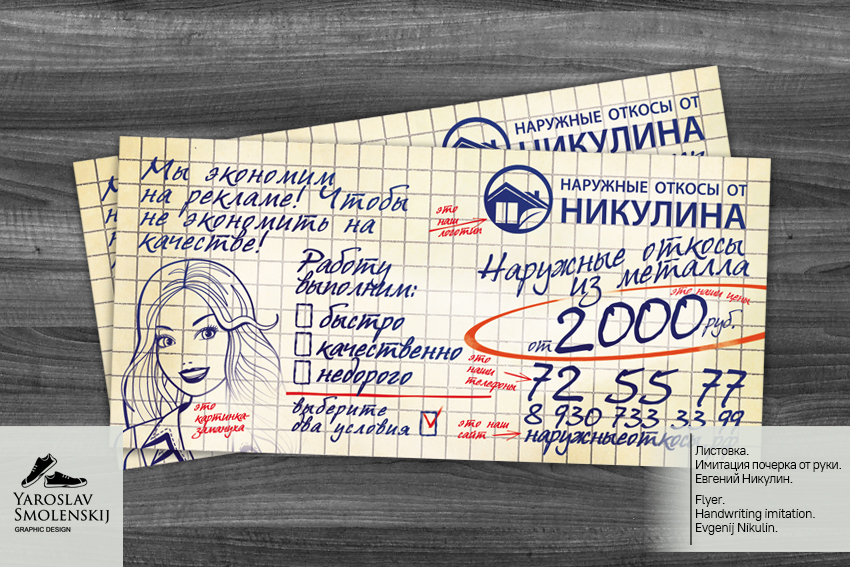 НАРУЖНЫЕ ОТКОСЫ ОТ
НИКУЛИНА
Мы экономим
на рекламе! Чтобы
не экономить на
качестве!
это
наш
логотип
НАРУЖНЫЕ ОТКОСЫ ОТ
НИКУЛИНА
Работу
выполним:
быстро
качественно
недорого
выберите
два условия
это
картинка-
замануха
Наружные откосы
из металла
это наши цены
от 2000 руб.
это
наши
телефоны
72 55 77
8 930 733 33 99
это наш
сайт
наружныеоткосы.рф
YAROSLAV
SMOLENSKIJ
GRAPHIC DESIGN
Листовка.
Имитация почерка от руки.
Евгений Никулин.
Flyer.
Handwriting imitation.
Evgenij Nikulin.